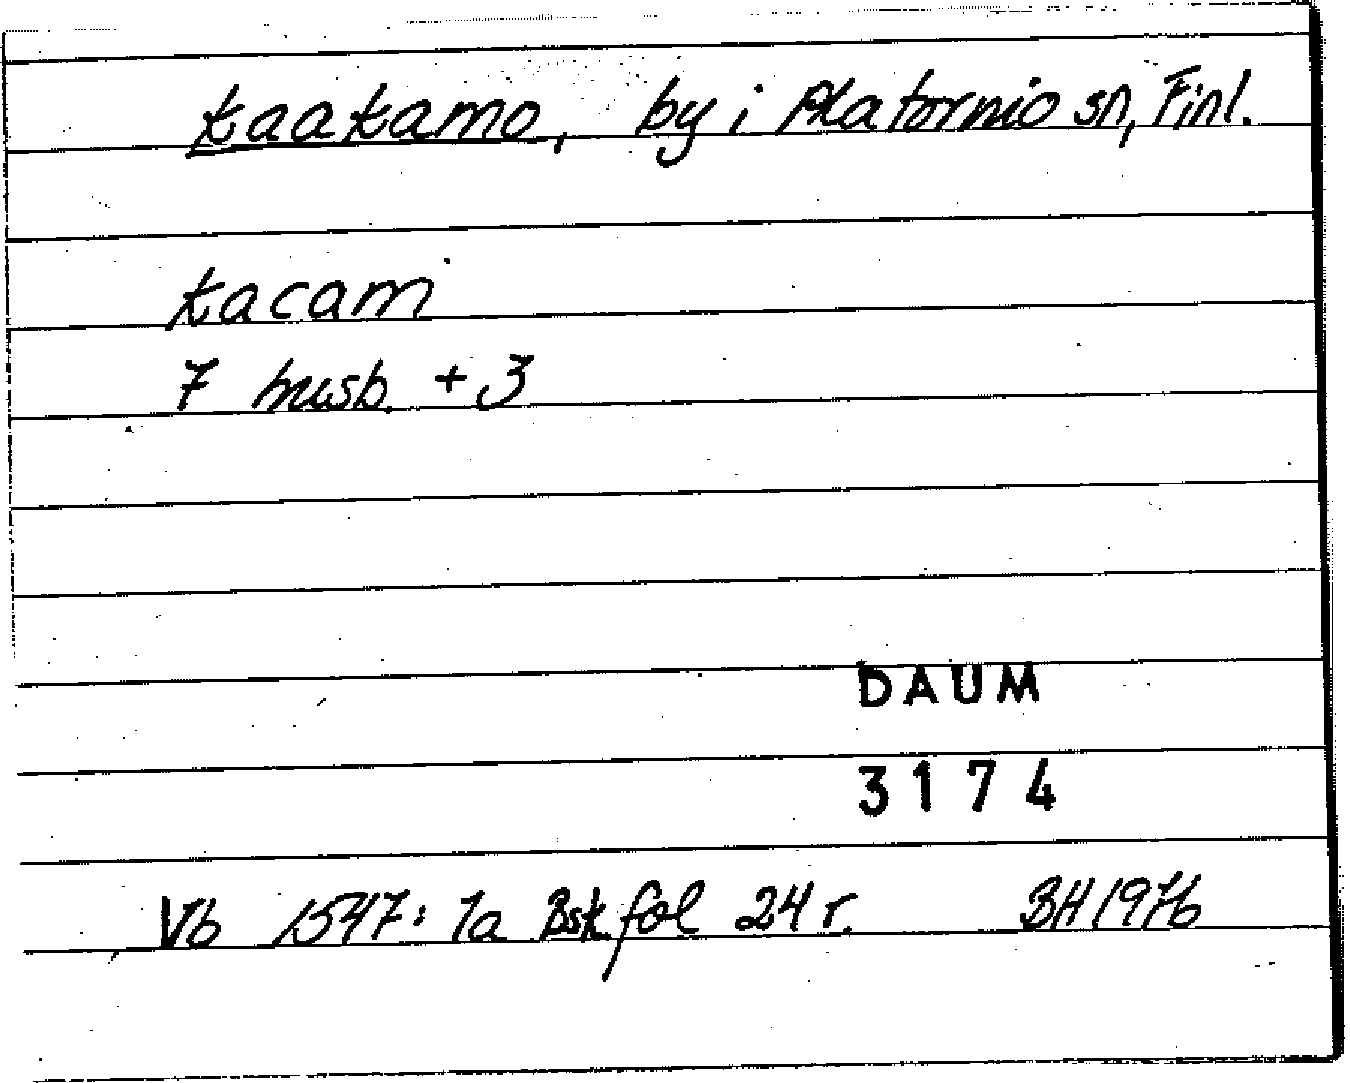 Kaakamo, by i Alatornio sn, Finl.
Kacam
7 husb. + 3
DAUM
3174
Vb 1547: 1a Bsk fol 24 r. BH 1976